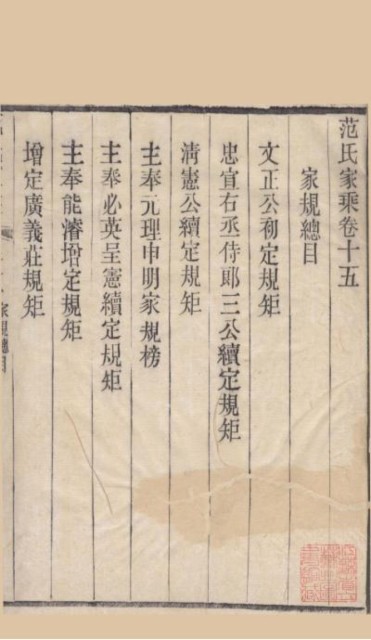 范氏家乘卷十五
家規總目
文正公初定規矩
忠宣右丞侍郎三公續定規矩
清憲公續定規矩
主奉元理申明家規榜
主奉必英呈憲續定規矩
主奉能濬增定規矩
增定廣義莊規矩
家規總目